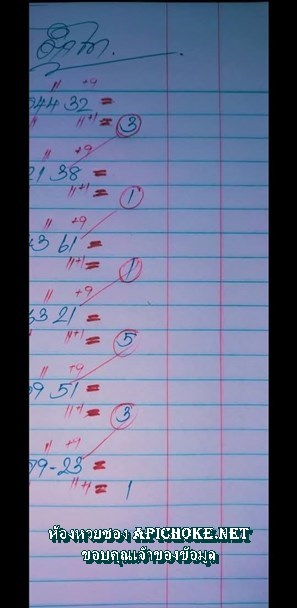 11 +9
944 32 =
11 +1 = 3
11 +9
21 38 =
11+1 = 1
11 +9
3 61 =
11+1 = 1
11 +9
63 21 =
11+1 = 5
11 +9
99 51 =
11+1 = 3
11 +9
99-23 =
11+1 = 1
ห้องหวยซอง APICHOKE.NET
ขอบคุณเจ้าของข้อมูล